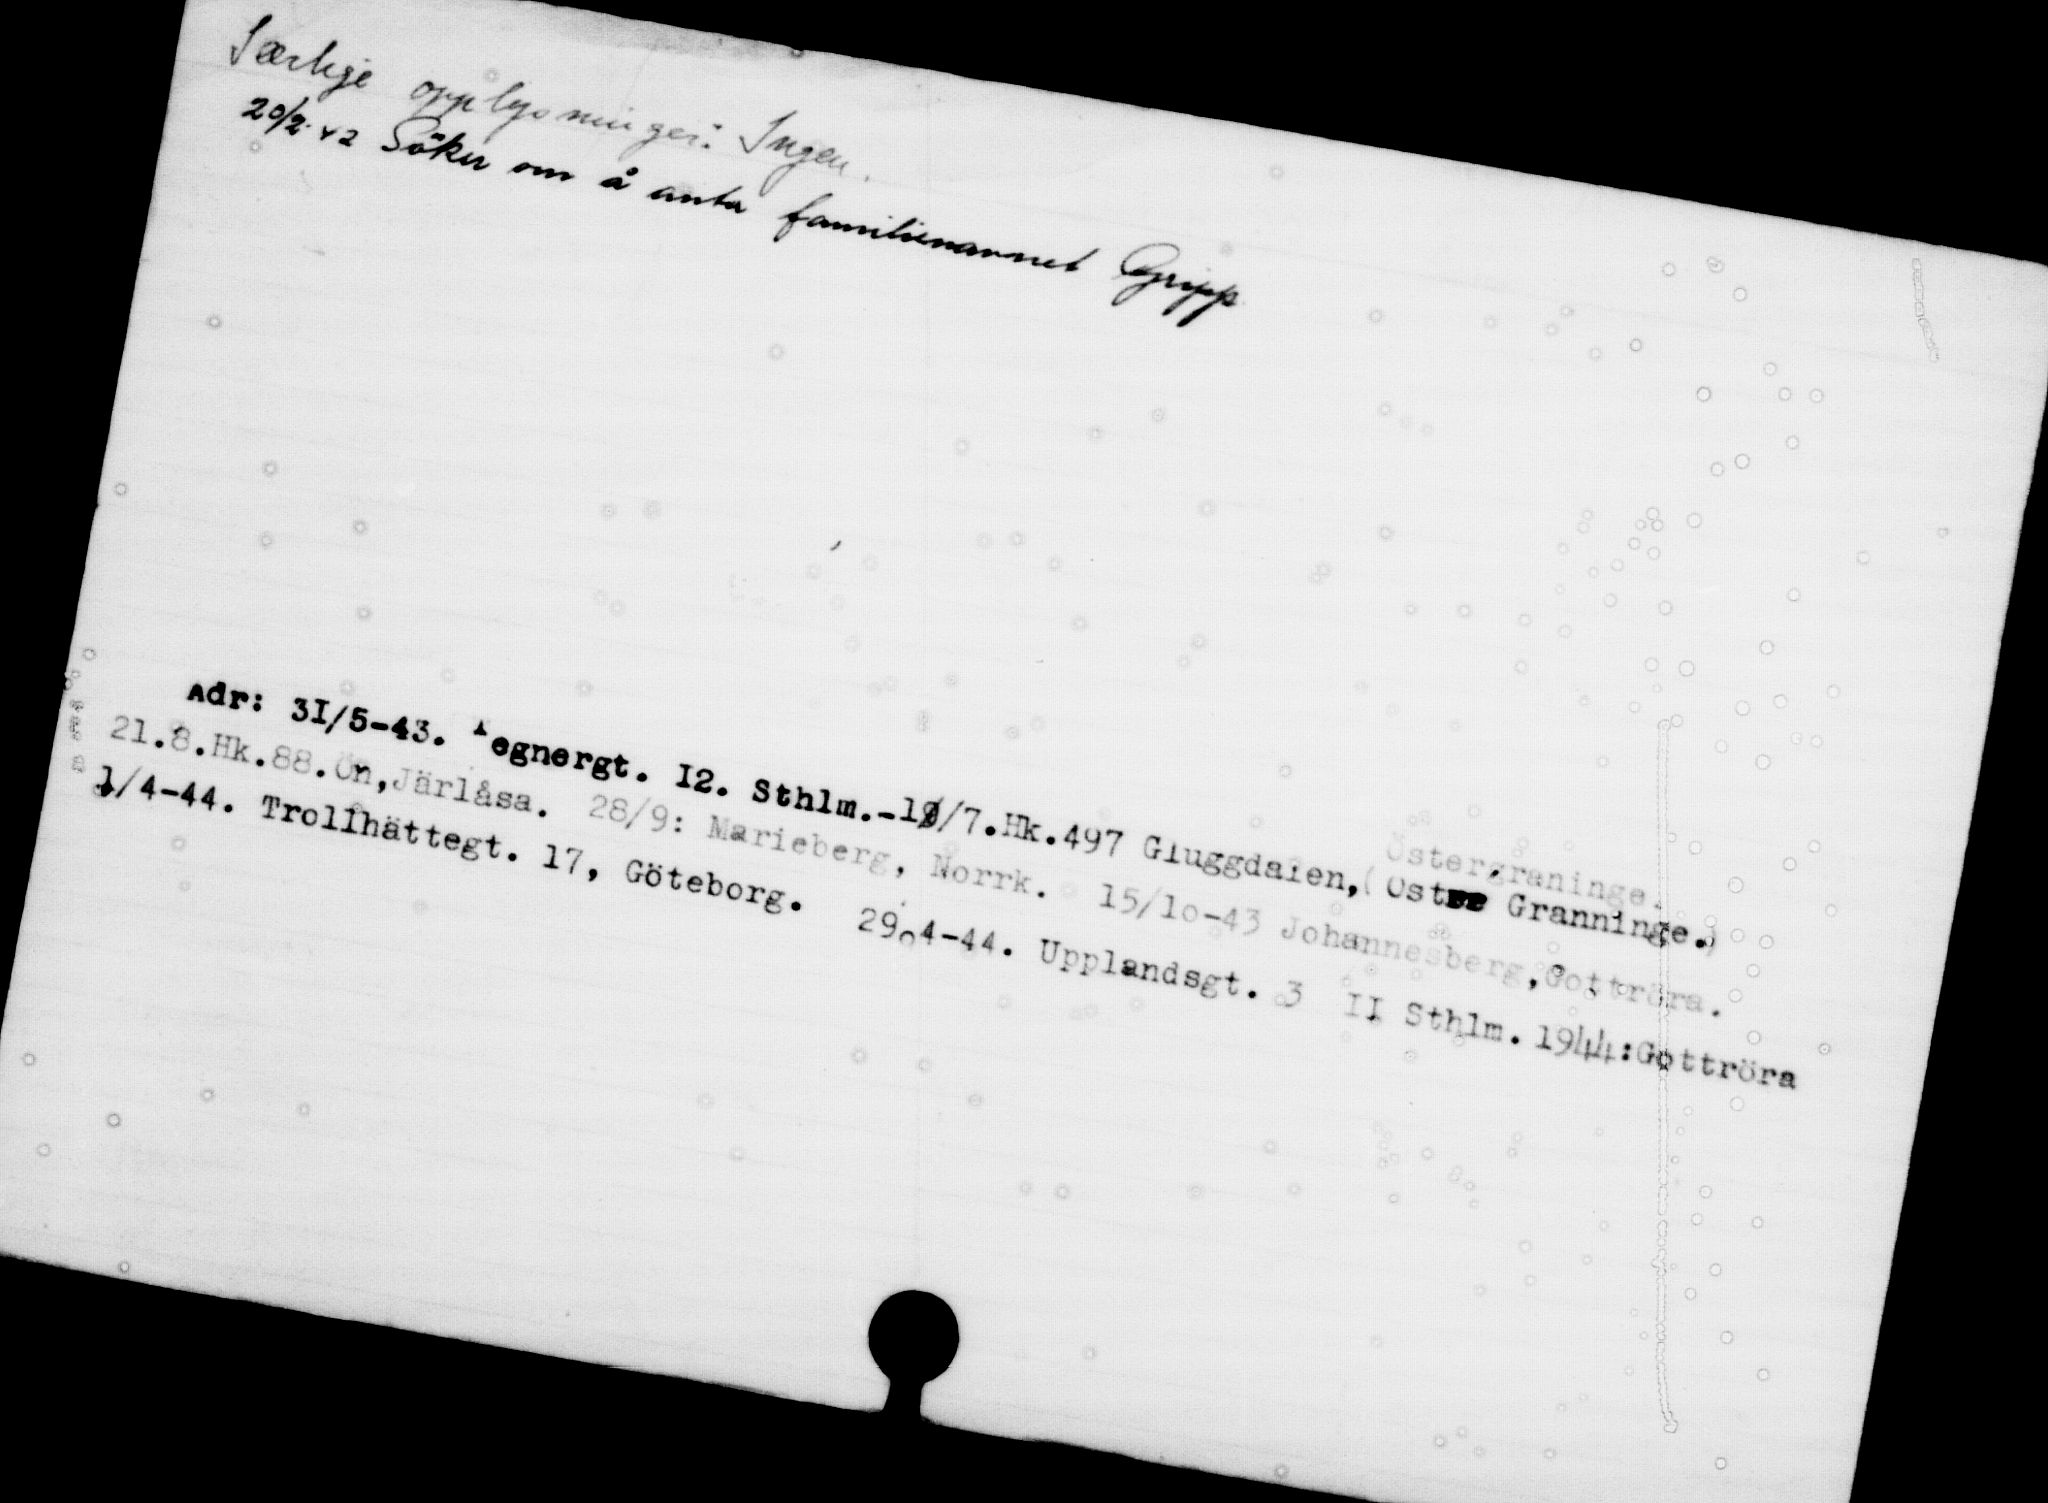 Særlige opplysninger: Ingen.
20/2 42 Söker om å anta familienavnet Gripp
Adr: 3I/5-43. Tegnergt. I2. Sthlm.-19/7.Hk.497 Gluggdalen,( Ostre Granninge.)
Östergraninge.
21.8.Hk.88.Ön,Järlåsa. 28/9: Marieberg, Norrk. 15/10-43 Johannesberg,Gottröra.
1/4-44. Trollhättegt. 17, Göteborg. 29.4-44. Upplandsgt. 3 II Sthlm. 1944:Gottröra